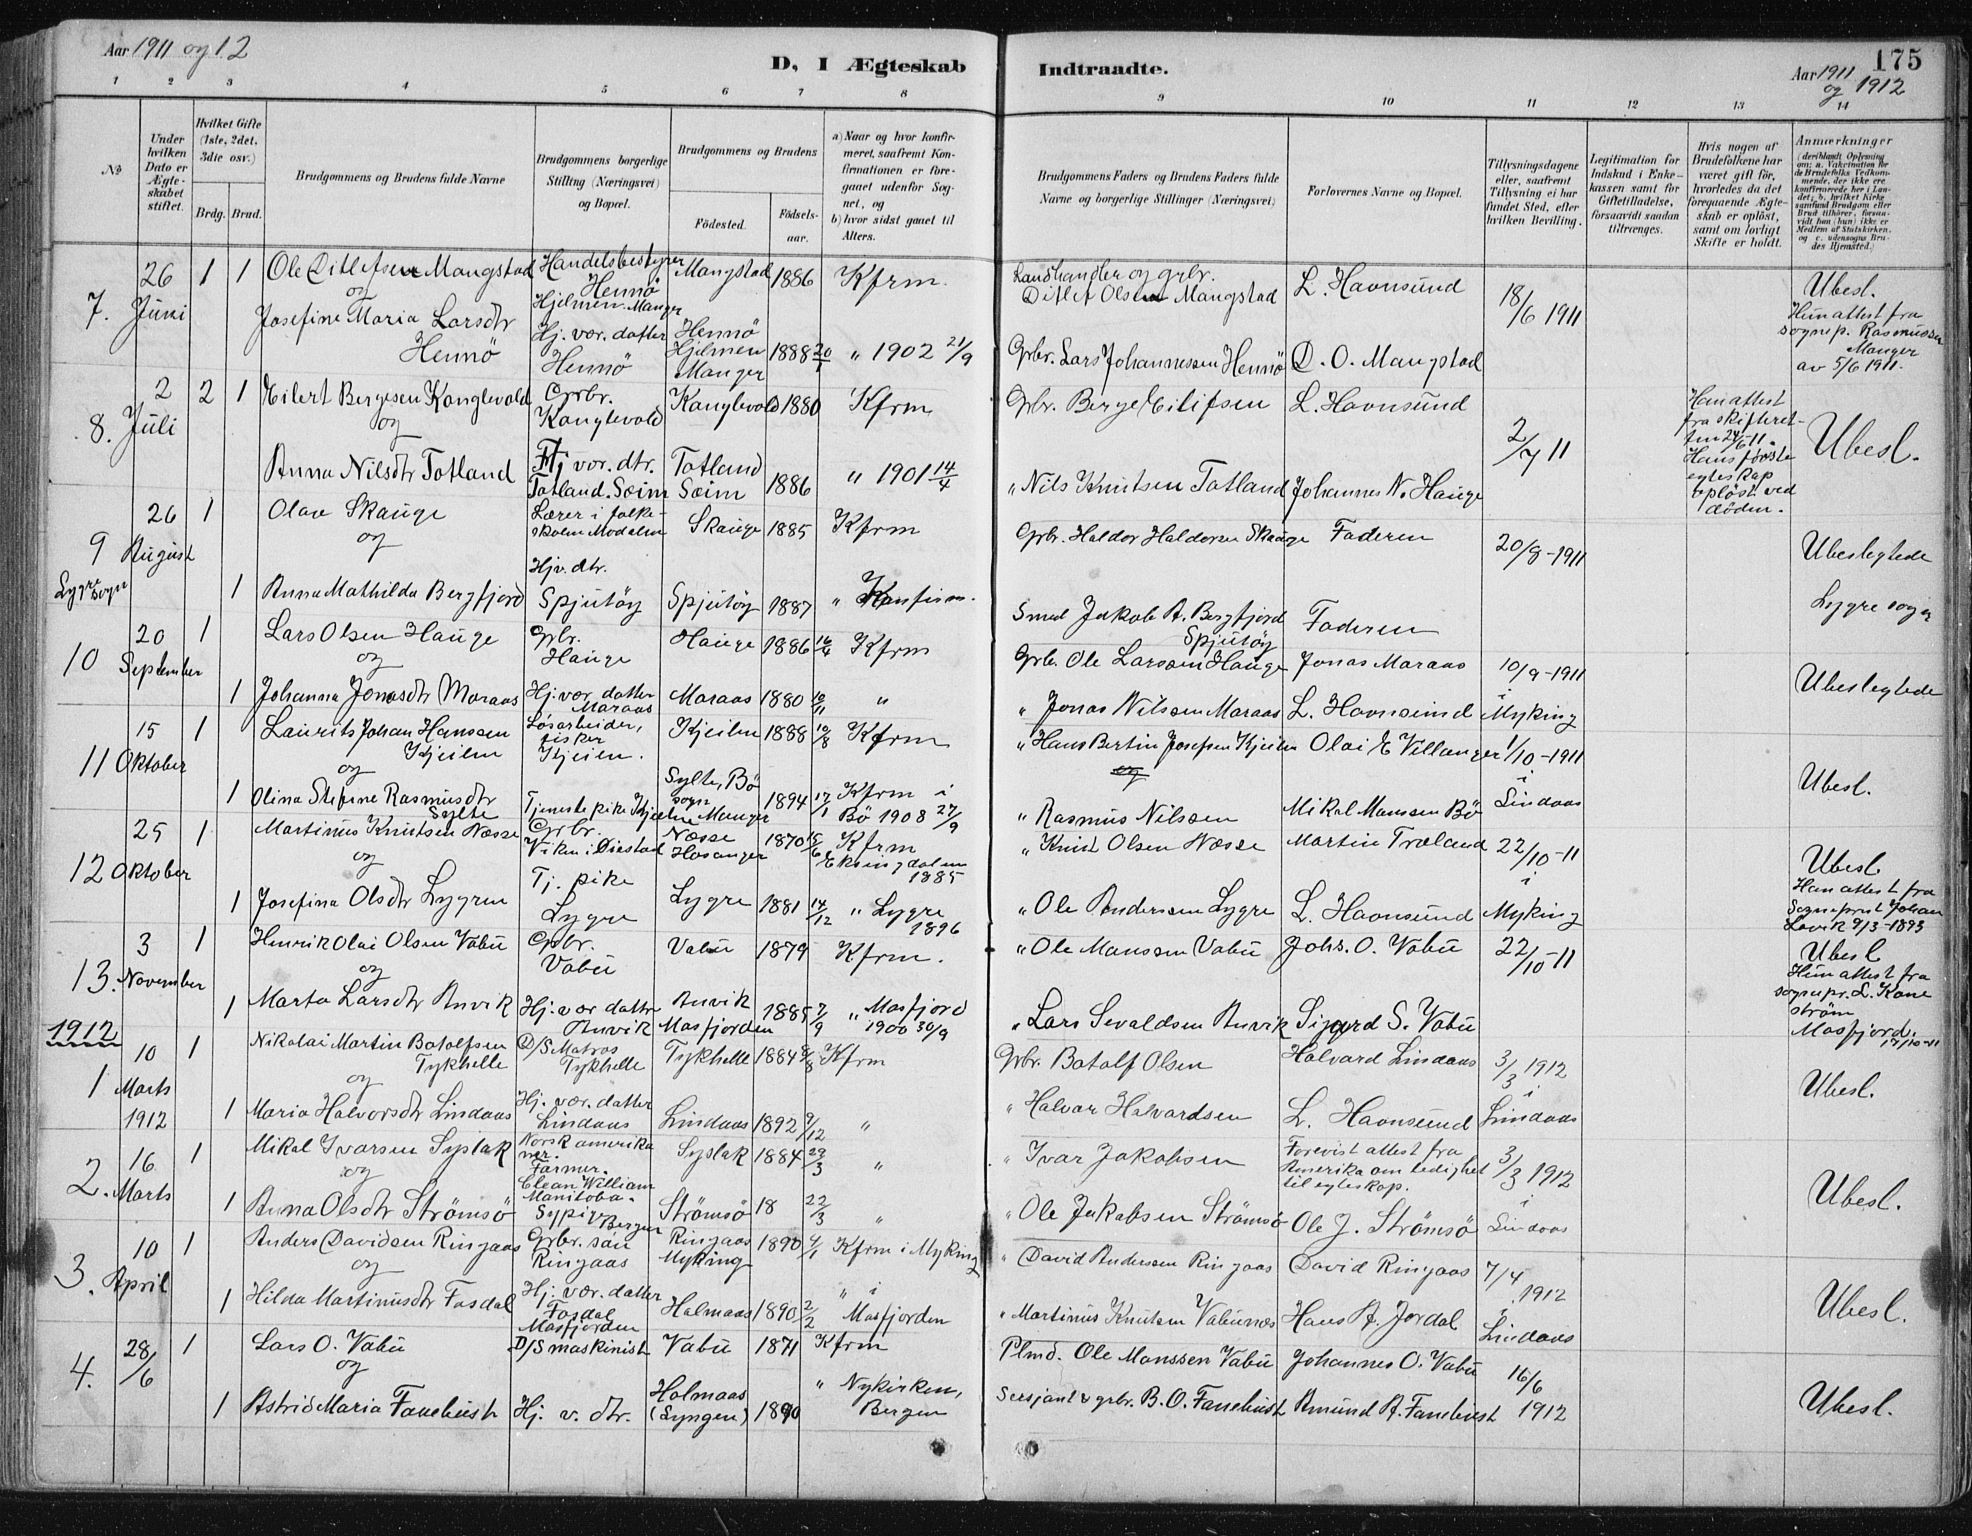 Aar 1911 og 12
D, I Ægteskab
Indtraadte.
Aar 1911 og 1912
175
1 2 3 4 5 6 7 8 9 10 11 12 13 14
No
Under hvilken Dato er Ægteskabet stiftet.
Hvilket Gifte (1ste, 2det, 3die osv.)
Brdg. Brud.
Brudgommens og Brudens fulde Navne
Brudgommens borgerlige Stilling (Næringsvei) og Bopæl.
Brudgommens og Brudens
Födested.
Födsels-aar.
a) Naar og hvor konfirmeret, saafremt Konfirmationen er foregaaet udenfor Sognet, og
b) hvor sidst gaaet til Alters.
Brudgommens Faders og Brudens Faders fulde Navne og borgerlige Stillinger (Næringsvei)
Forlovernes Navne og Bopæl.
Tillysningsdagene eller, saafremt Tillysning ei har fundet Sted, efter hvilken Bevilling.
Legitimation for Indskud i Enkekassen samt for Giftetilladelse, forsaavidt saadan tiltrænges.
Hvis nogen af Brudefolkene har været gift för, hvorledes da det foregaaende Ægteskab er oplöst, samt om lovligt Skifte er holdt.
Anmærkninger
7. 26 Juni 1 1 Ole Ditlefsen Mangstad Handelsbestyrer Hennö Hjelmen. Manger Mangstad 1886 Kfrm. Landhandler og grbr. Ditlef Olsen Mangstad L. Havnsund 18/6 1911 Ubesl.
og
Josefine Maria Larsdtr Hennö Hj. vær. datter Hennö Hennö Hjelmen Manger 1888 20/1 " 1902 21/9 Grbr. Lars Johannessen Hennö D. O. Mangstad Hun attest fra sognep. Rasmussen Manger av 5/6 1911.
8. 2 Juli 2 1 Eilert Bergesen Konglevold Grbr. Konglevold Konglevold 1880 Kfrm Grbr. Berge Eilifsen L. Havnsund 2/7 11 Han attest fra skifteretten 24/6 11. Hans förste egteskap oplöst ved döden. Ubesl.
og
Anna Nilsdtr Totland Hj vær. dtr. Totland. Sæim Totland Sæim 1886 " 1901 14/4 " Nils Knutsen Totland Johannes N. Hauge
9 26 August 1 Olav Skauge Lærer i folkeskolen Modalen Skauge 1885 Kfrm Grbr. Haldor Haldorsen Skauge Faderen 20/8-1911 Ubeslegtede
og
Lygre sogn 1 Anna Mathilda Bergfjord Hjv. dtr. Spjutöy Spjutöy 1887 " Konfirm. Smed Jakob A. Bergfjord Spjutöy Faderen Lygre sogn
10 20 September 1 Lars Olsen Hauge Grbr. Hauge Hauge 1886 16/6 Kfrm Grb. Ole Larssen Hauge Jonas Maraas 10/9-1911 i Ubeslegtede
og
1 Johanna Jonasdtr Maraas Hj. vær. datter Maraas Maraas 1880 10/11 " " Jonas Nilsen Maraas L. Havnsund Myking
11 15 Oktober 1 Laurits Johan Hanssen Kjeilen Lösarbeider, fisker Kjeilen. Kjeilen 1888 10/8 Kfrm " Hans Bertin Josefsen Kjeilen Olai E Villanger 1/10-1911 i Ubesl.
og
1 Olina Stefine Rasmusdtr Sylte Tjeneste pike Kjeilen Sylte, Bö sogn Manger 1894 17/1 Kfrm i Bö 1908 27/9 " Rasmus Nilsen Mikal Monssen Bö Lindaas
12 25 Oktober 1 Martinus Knutsen Næsse Grbr. Viken i Eiestad Næsse Hosanger 1870 15/6 Kfrm Eksingdalen 1885 " Knut Olsen Næsse Martin Træland 22/10-11 i Ubesl
og
1 Josefina Olsdtr Lygren Tj. pike Lygre Lygre 1881 14/12 " Lygre 1896 " Ole Andersen Lygre L. Havnsund Myking Han attest fra Sogneprest Johan Lavik 9/3-1893
13. 3 November 1 Henrik Olai Olsen Vabü Grbr. Vabü Vabü 1879 Kfrm. " Ole Monssen Vabü Johs. O. Vabü 22/10-11 Ubesl
og
1 Marta Larsdtr Anvik Hj. vær datter Anvik Anvik Masfjorden 1885 7/9 " Masfjord 1900 30/9 " Lars Sevaldsen Anvik Sigurd S. Vabü Hun attest fra sognepr. L. Koneström Masfjord. 17/10-11
1912
1 10 Marts 1912 1 Nikolai Martin Batolfsen Tykhelle D/S Matros Tykhelle Tykhelle 1884 9/8 Kfrm Grbr. Batolf Olsen Halvard Lindaas 3/3 1912 i Ubesl.
og
1 Maria Halvorsdtr Lindaas Hj. vær. datter Lindaas Lindaas 1892 9/12 " " Halvar Halvardsen L. Havnsund Lindaas
2. 16 Marts 1 Mikal Ivarsen Syslak Norsk amerikaner. Farmer. Clean William Manitoba. Syslak 1884 29/3 " " Ivar Jakobsen Forevist attest fra Amerika om ledighet til egteskap. 3/3 1912 i Ubesl.
og
1 Anna Olsdtr Strömsö Sypige Bergen Strömsö 18 22/3 " " Ole Jakobsen Strömsö Ole J. Strömsö Lindaas
3. 10 April 1 Anders Davidsen Ringaas Grbr. sön Ringaas Ringaas Myking 1890 4/1 Kfrm i Myking " David Andersen Ringaas David Ringaas 7/4 1912 i Ubesl.
og
1 Hilda Martinusdtr Fosdal Hj. vær. datter Fosdal Masfjorden Halmaas 1890 2/2 " i Masfjorden " Martinus Knutsen Vabünæs Hans A. Jordal Lindaas
4. 28/6 1 Lars O. Vabü D/S maskinist Vabü 1871 Kfrm Plmd. Ole Monssen Vabü Johannes O. Vabü 16/6 1912 Ubesl.
og
1 Astrid Maria Fanebust Hj. v. dtr. Holmaas (Lyngen) 1890 " Nykirken, Bergen Sersjant & grbr. B. O. Fanebust Amund A. Fanebust